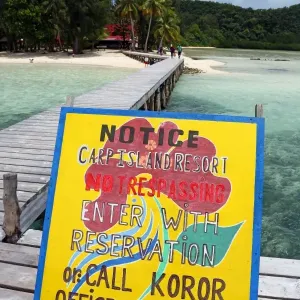 NOTICE
CARP ISLAND RESORT
NO TRESPASSING
ENTER WITH
RESERVATION
or CALL KOROR
OFFICE